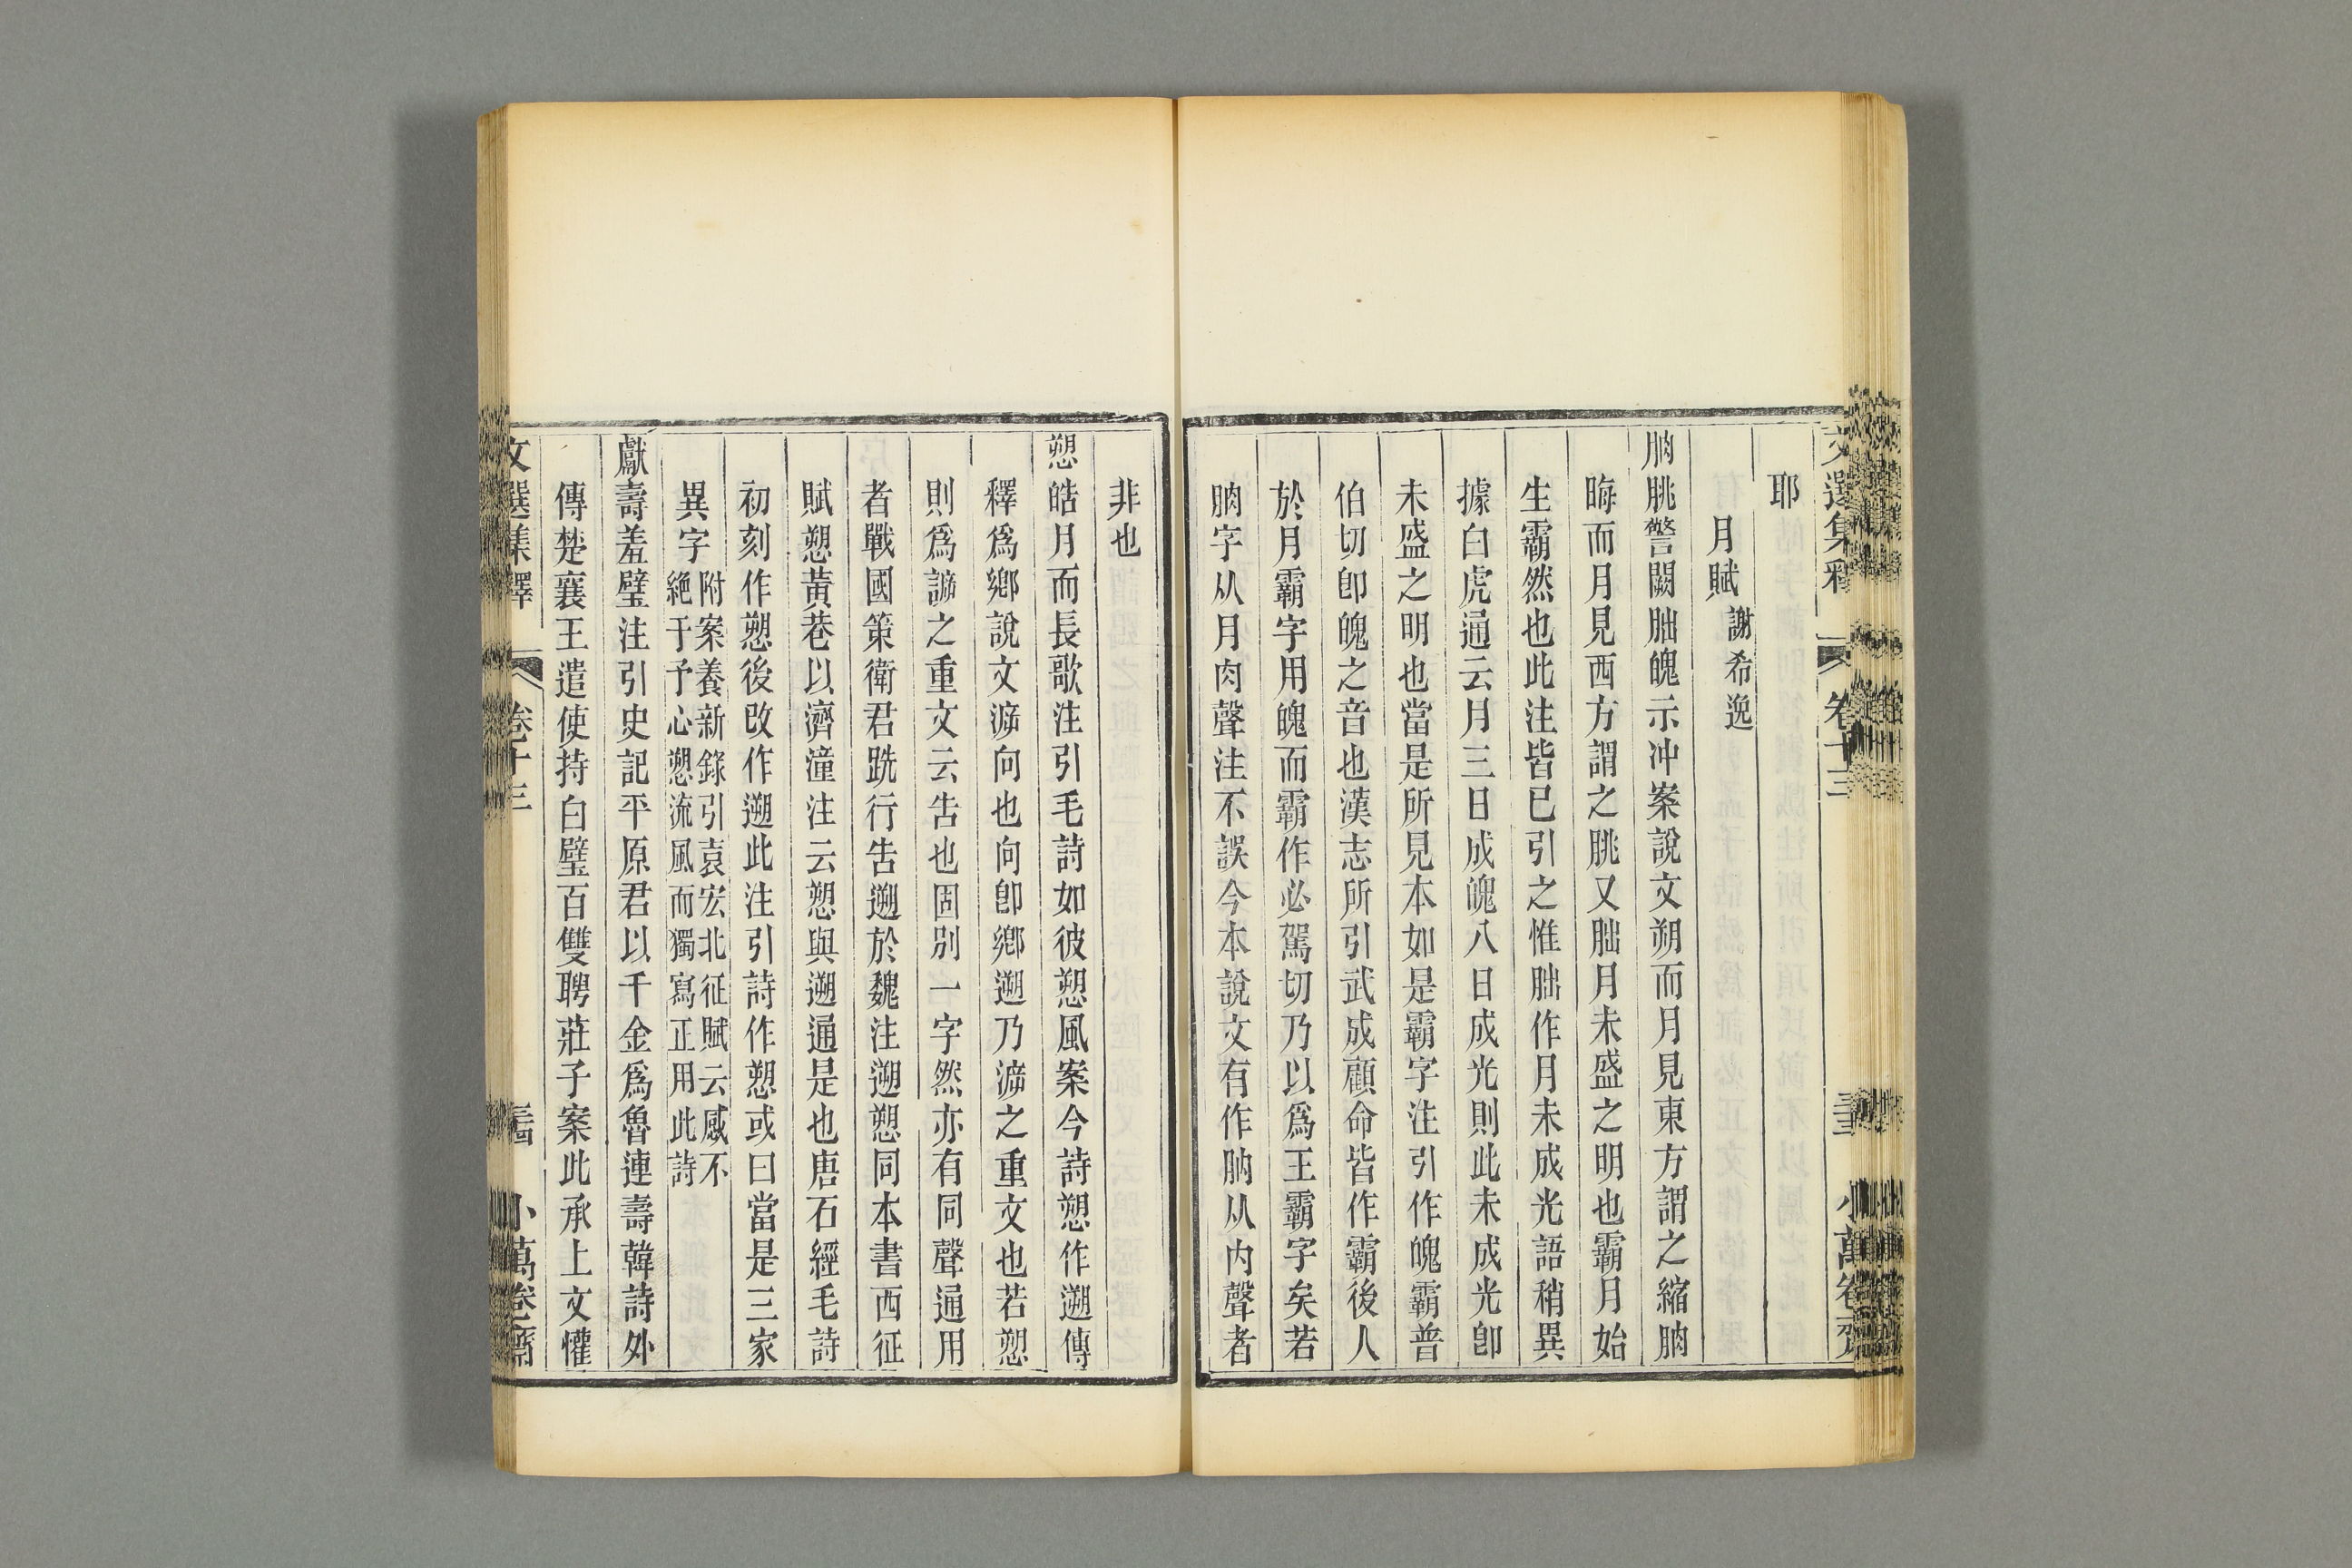 文選集釋 卷十三 小萬卷齋
耶
月賦 謝希逸
朒朓警闕朏魄示冲案說文朔而月見東方謂之縮朒
晦而月見西方謂之朓又朏月未盛之明也霸月始
生霸然也此注皆已引之惟朏作月未成光語稍異
據白虎通云月三日成魄八日成光則此未成光卽
未盛之明也當是所見本如是霸字注引作魄霸普
伯切卽魄之音也漢志所引武成顧命皆作霸後人
於月霸字用魄而霸作必駕切乃以爲王霸字矣若
朒字从月肉聲注不誤今本說文有作肭从內聲者
非也
愬皓月而長歌注引毛詩如彼愬風案今詩愬作遡傳
釋爲鄉說文㴑向也向卽鄉遡乃㴑之重文也若愬
則爲諦之重文云告也固別一字然亦有同聲通用
者戰國策衛君跣行告遡於魏注遡愬同本書西征
賦愬黃巷以濟潼注云愬與遡通是也唐石經毛詩
初刻作愬後改作遡此注引詩作愬或曰當是三家
異字附案養新錄引袁宏北征賦云感不
絕于予心愬流風而獨寫正用此詩
獻壽羞璧注引史記平原君以千金爲魯連壽韓詩外
傳楚襄王遣使持白璧百雙聘莊子案此承上文懽
文選集釋 卷十三 小萬卷齋